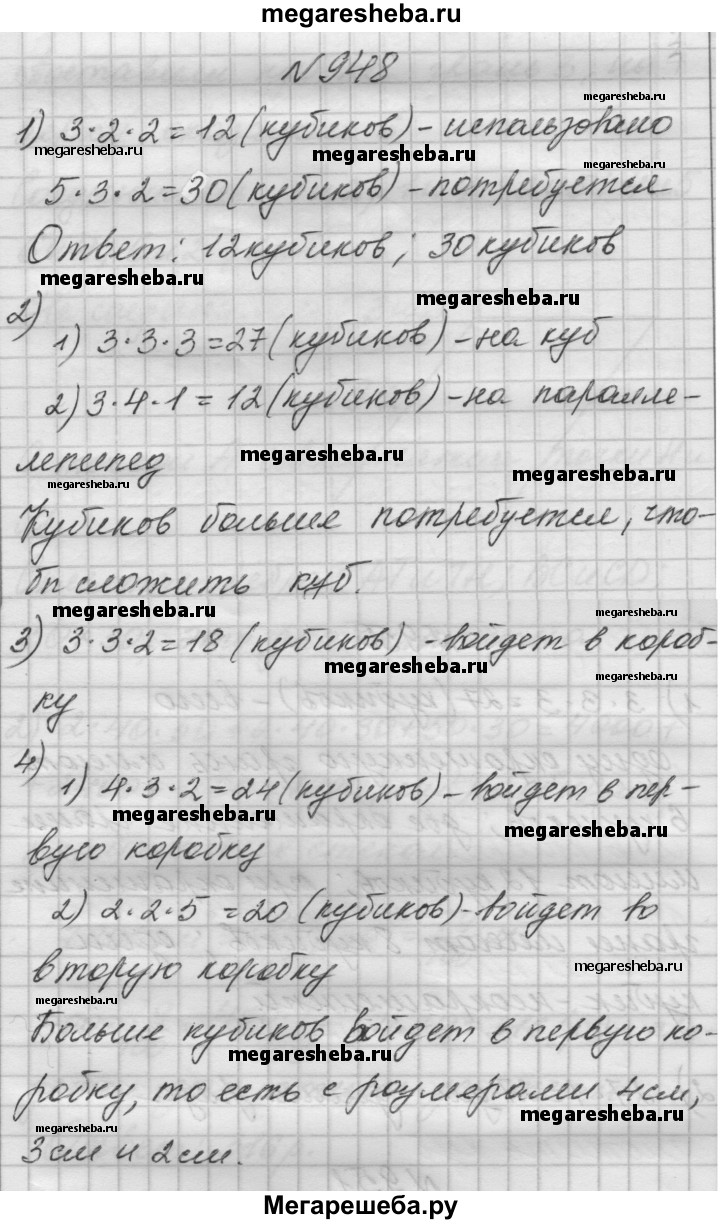 megaresheba.ru
№948
megaresheba.ru
1) 3·2·2=12 (кубиков) - использовано
megaresheba.ru
megaresheba.ru
megaresheba.ru
5·3·2=30 (кубиков) - потребуется
Ответ: 12 кубиков; 30 кубиков
megaresheba.ru
megaresheba.ru
2)
1) 3·3·3=27 (кубиков) - на куб
2) 3·4·1=12 (кубиков) - на паралле-
лепипед
megaresheba.ru
megaresheba.ru
megaresheba.ru
Кубиков больше потребуется, что-
бы сложить куб.
megaresheba.ru
megaresheba.ru
3) 3·3·2=18 (кубиков) - войдет в короб-
megaresheba.ru
ку
4)
1) 4·3·2=24 (кубиков) - войдет в пер-
megaresheba.ru
megaresheba.ru
вую коробку
2) 2·2·5=20 (кубиков) - войдет во
вторую коробку
megaresheba.ru
megaresheba.ru
Больше кубиков войдет в первую ко-
megaresheba.ru
робку, то есть с размерами 4см,
megaresheba.ru
megaresheba.ru
3см и 2см.
Мегарешеба.ру